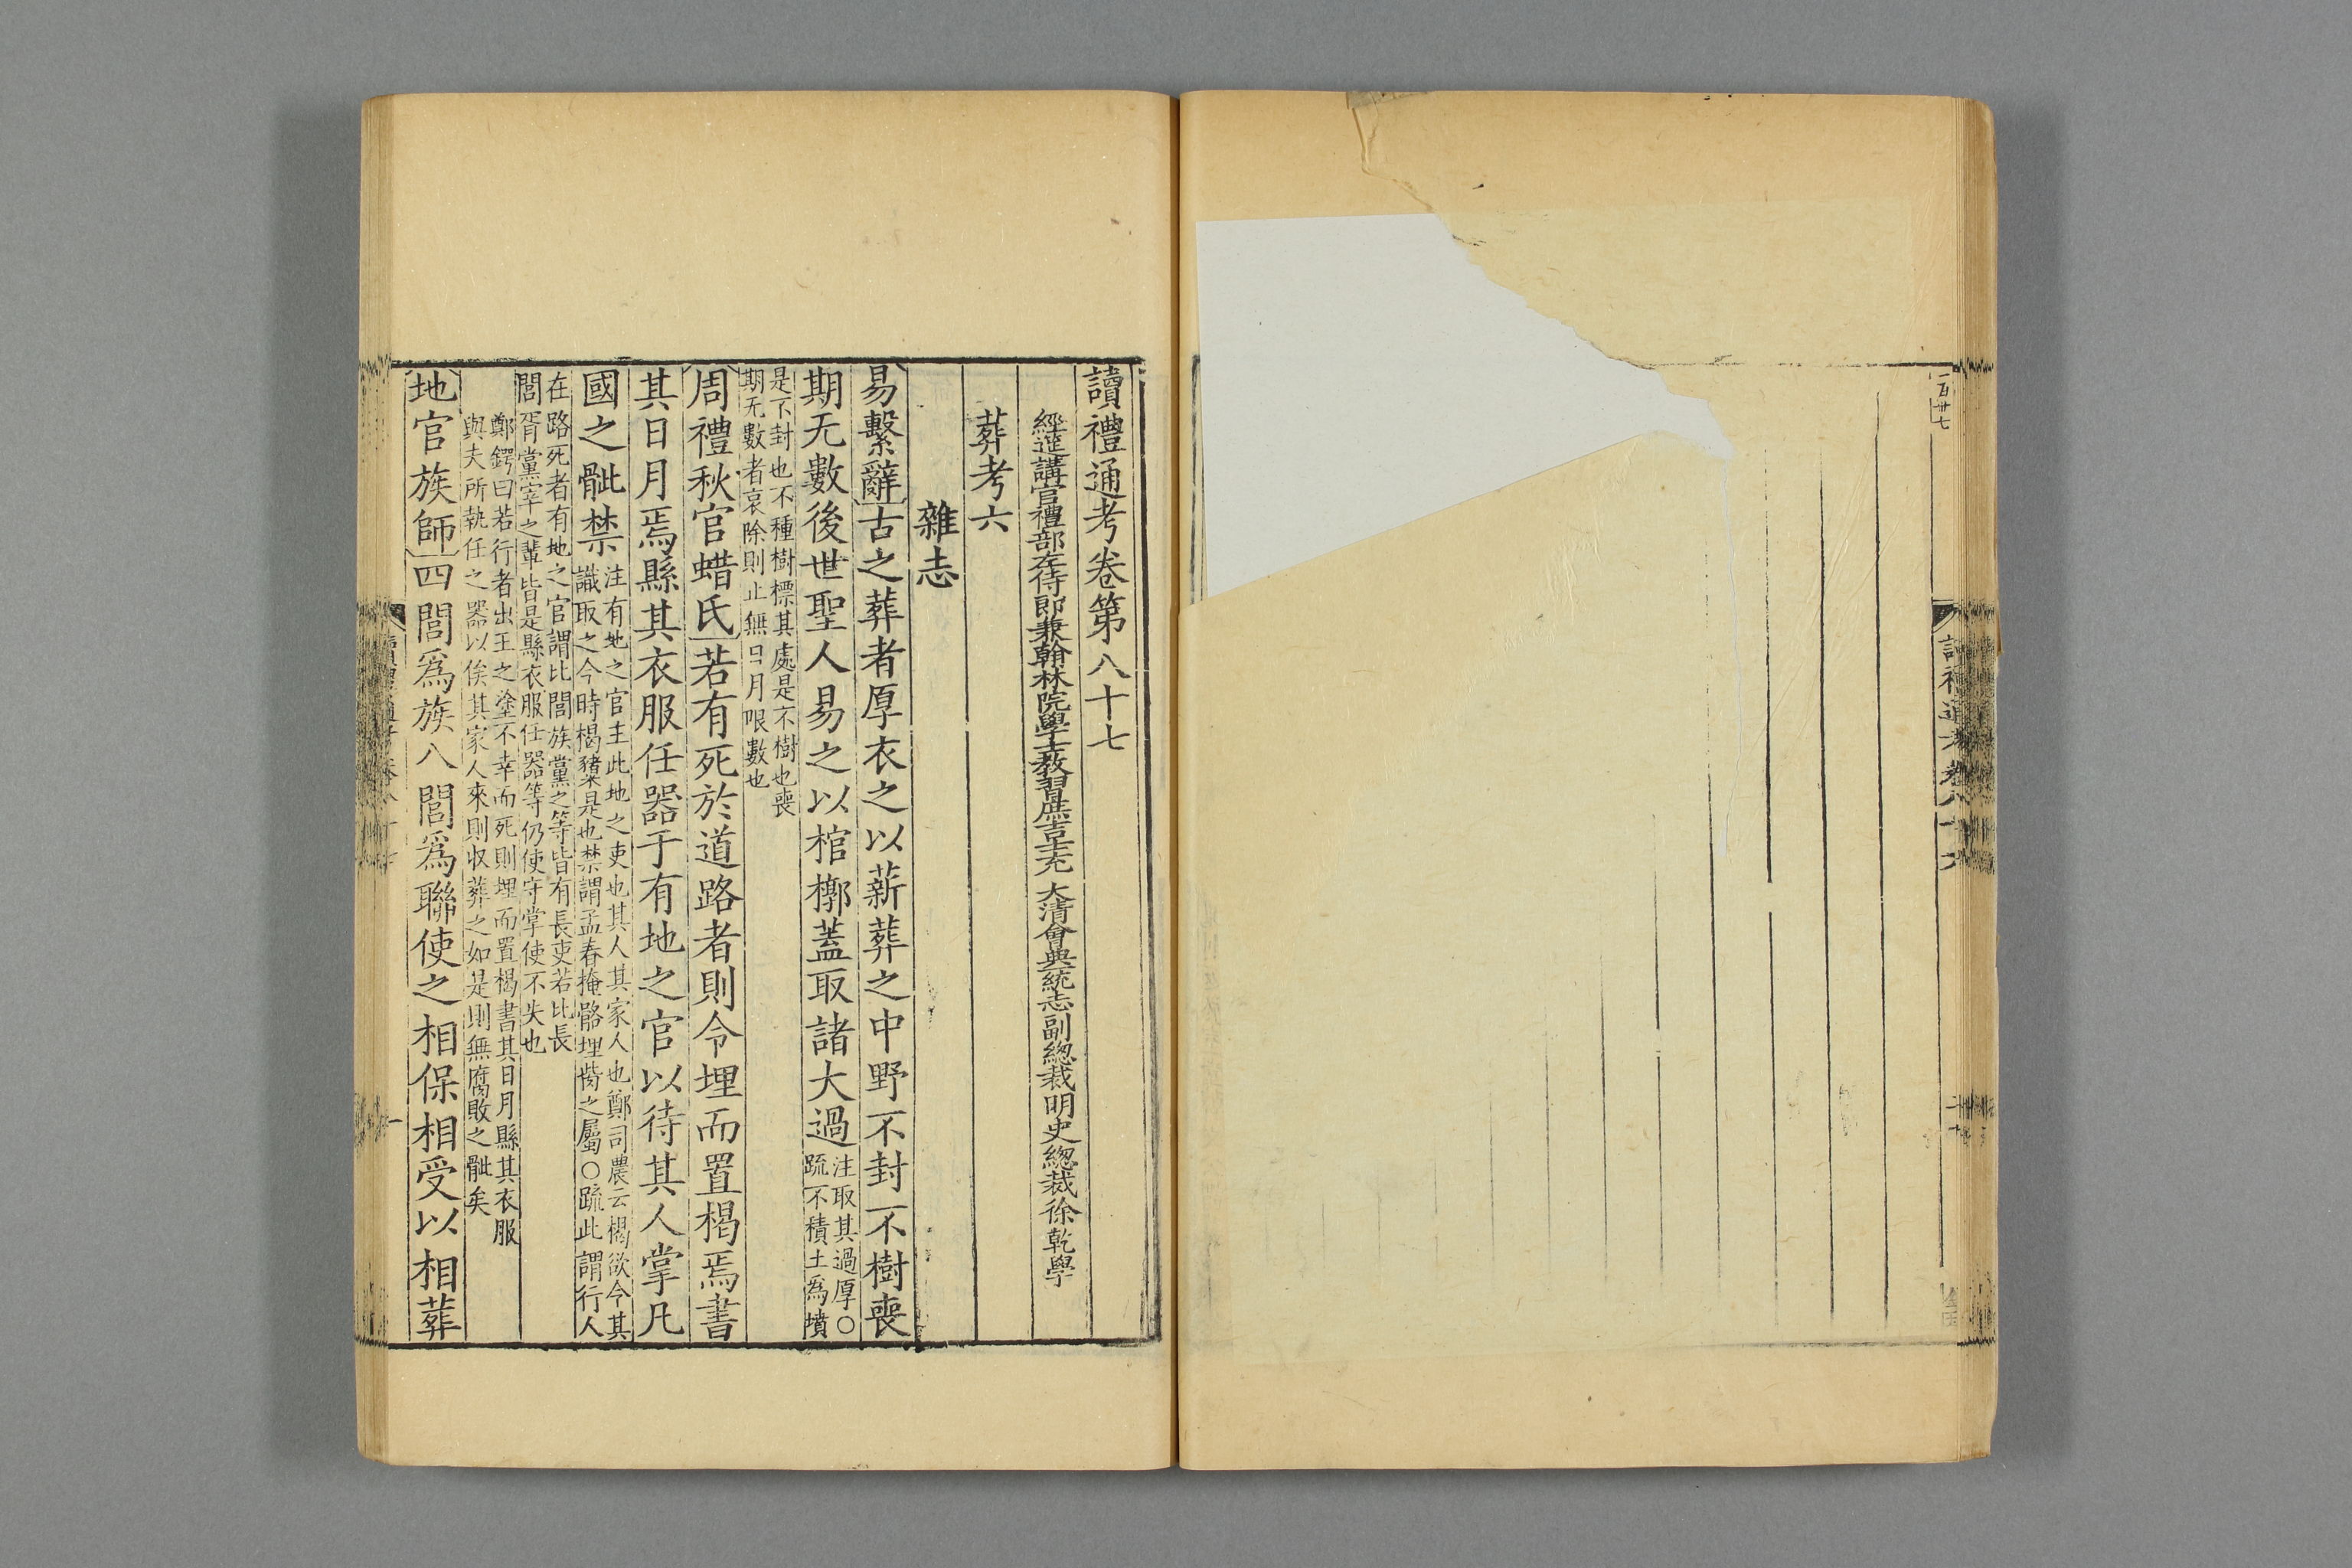 一百卅七
讀禮通考卷八十六
讀禮通考卷第八十七
經筵講官禮部左侍郎兼翰林院學士教習庶吉士充 大清會典一統志副總裁明史總裁徐乾學
葬考六
雜志
易繫辭古之葬者厚衣之以薪葬之中野不封不樹喪
期无數後世聖人易之以棺槨蓋取諸大過
注取其過厚○
疏不積土爲墳
是不封也不種樹標其處是不樹也喪
期无數者哀除則止無日月限數也
周禮秋官蜡氏若有死於道路者則令埋而置楬焉書
其日月焉縣其衣服任器于有地之官以待其人掌凡
國之骴禁
注有地之官主此地之吏也其人其家人也鄭司農云楬欲令其
識取之今時楬櫫是也禁謂孟春掩骼埋胔之屬○疏此謂行人
在路死者有地之官謂比閭族黨之等皆有長吏若比長
閭胥黨宰之輩皆是縣衣服任器等仍使守掌使不失也
鄭鍔曰若行者出王之塗不幸而死則埋而置楬書其日月縣其衣服
與夫所執任之器以俟其家人來則收葬之如是則無腐敗之骴矣
地官族師四閭爲族八閭爲聯使之相保相受以相葬
讀禮通考卷八十七
一